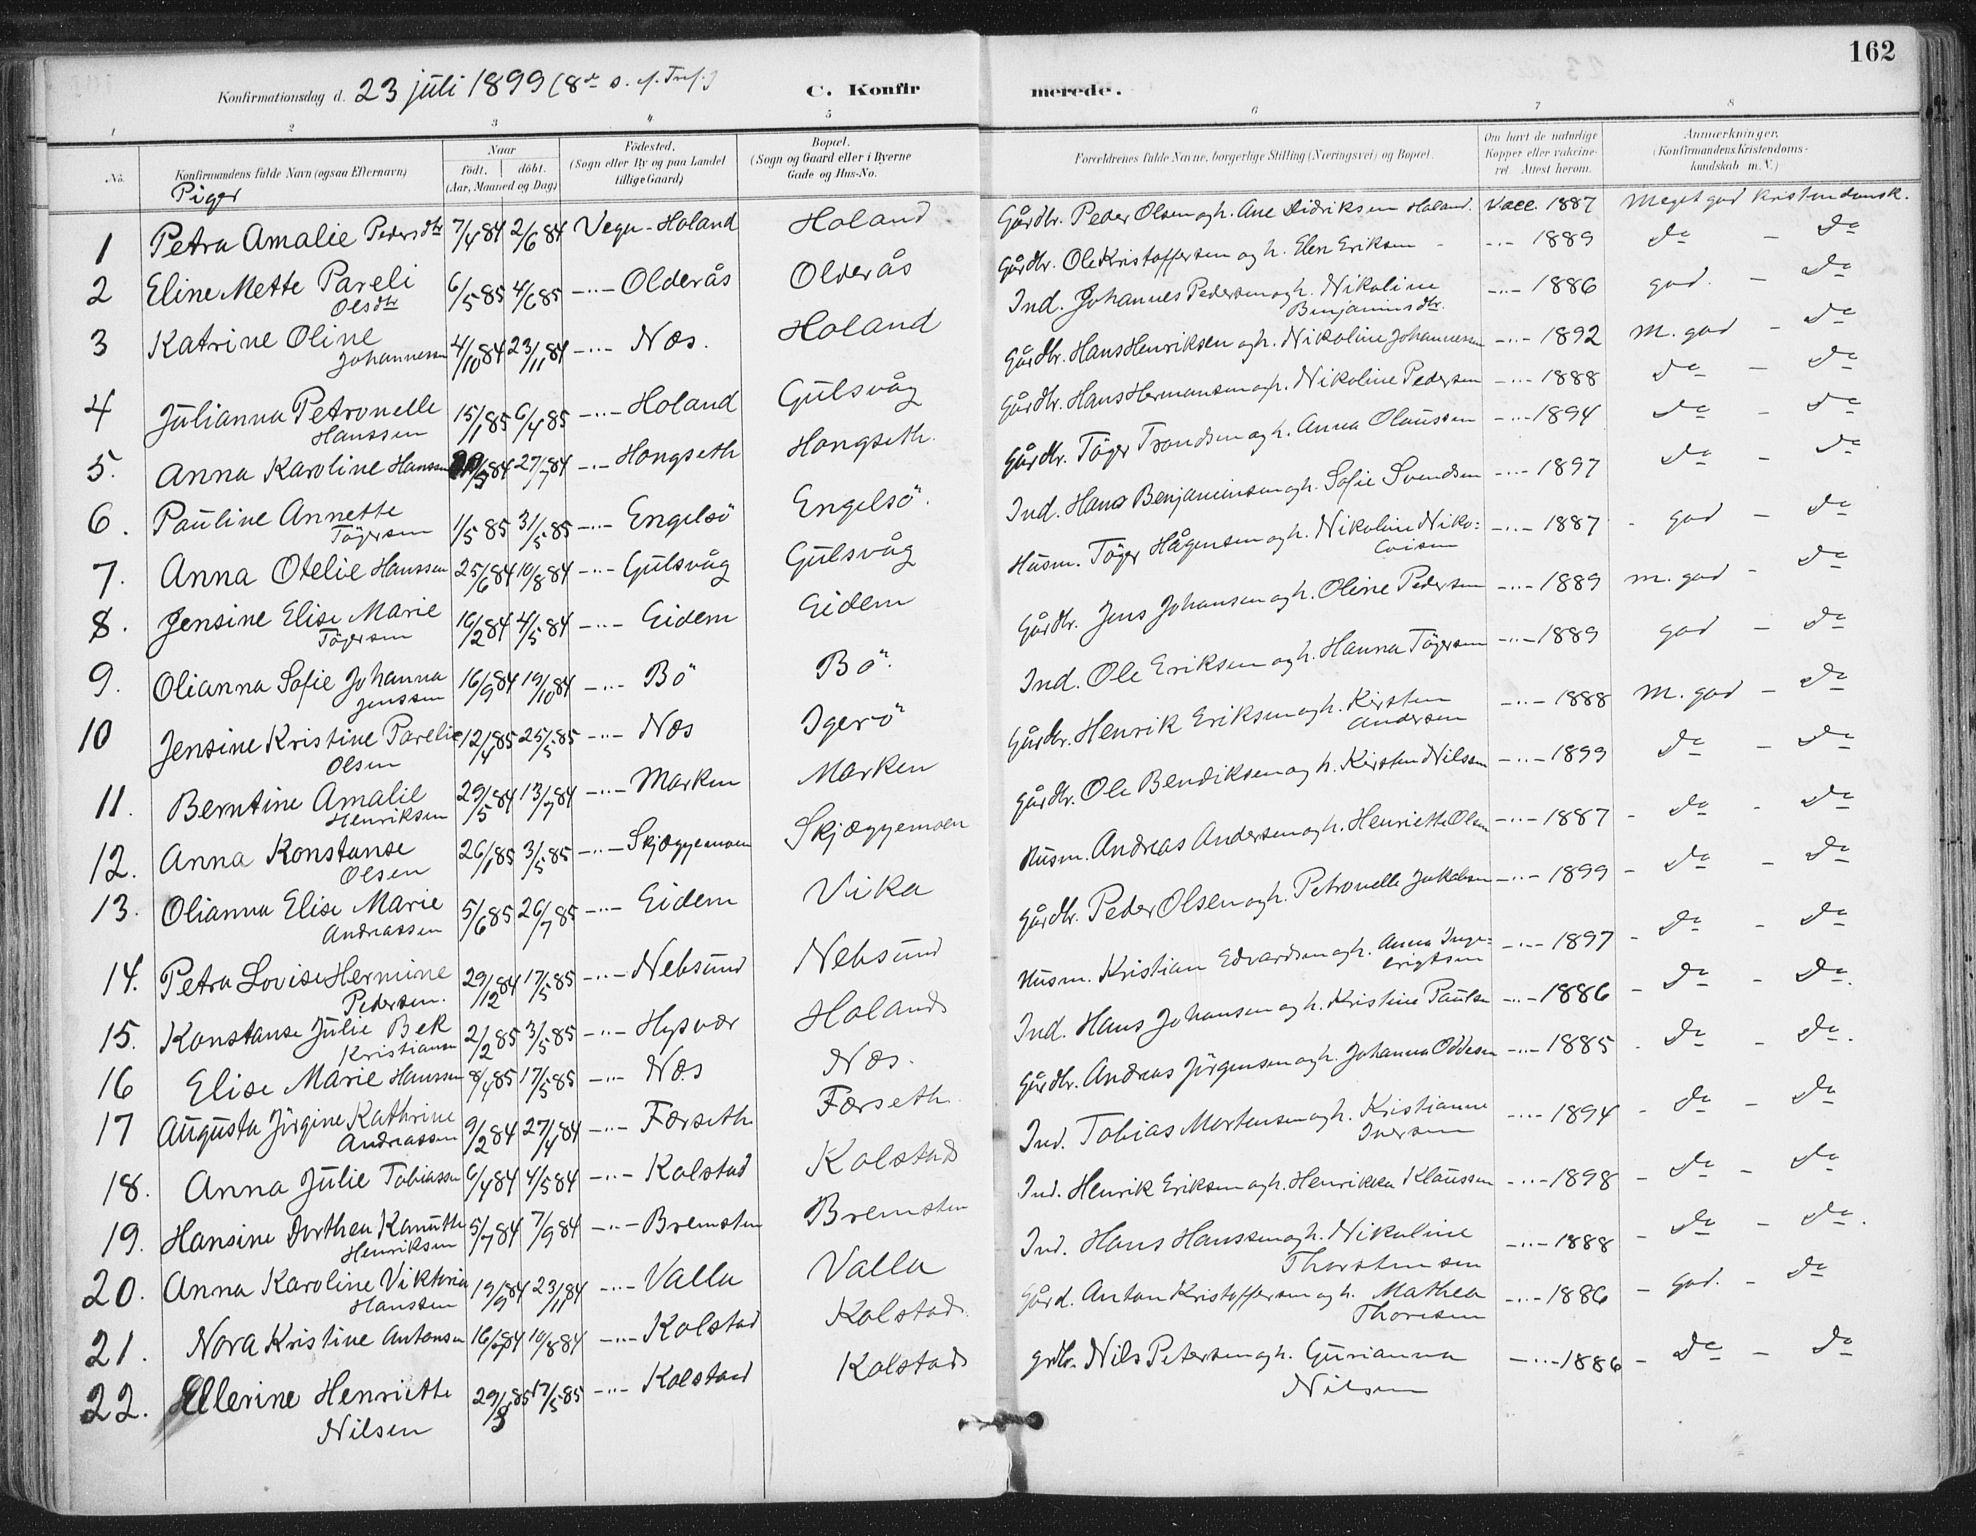 162
Konfirmationsdag d. 23 juli 1899 (8de s. e. Tref.)
C. Konfirmerede.
1 2 3 4 5 6 7 8
No. Konfirmandens fulde Navn (ogsaa Efternavn) Naar født. døbt. (Aar, Maaned og Dag) Fødested. (Sogn eller By og paa Landet tillige Gaard) Bopæl. (Sogn og Gaard eller i Byerne Gade og Hus-No. Forældrenes fulde Navne, borgerlige Stilling (Næringsvei) og Bopæl. Om havt de naturlige Kopper eller vakcineret. Attest herom. Anmærkninger. (Konfirmandens Kristendomskundskab m. V.)
Piger
1 Petra Amalie Pedersdtr 7/4 84 2/6 84 Vega - Holand Holand Gårdbr. Peder Olsen og h. Ane Didriksen Holand. Vacc. 1887 Meget god Kristendomsk.
2 Eline Mette Pareli Olsdtr 6/5 85 4/6 85 -"- Olderås Olderås Gårdbr. Ole Kristoffersen og h. Elen Eriksen - -"- 1889 do - do
3 Katrine Oline Johannessen 4/10 84 23/11 84 -"- Næs. Holand Ind. Johannes Pedersen og h. Nikoline Benjaminsdtr. -"- 1886 god. - do
4 Julianna Petronelle Hanssen 15/1 85 6/4 85 -"- Holand Gulsvåg Gårdbr. Hans Henriksen og h. Nikoline Johannessen -"- 1892 M. god - do
5. Anna Karoline Hanssen 84 27/7 84 -"- Hongseth Hongseth. Gårdbr. Hans Hermansen og h. Nikoline Pedersen -"- 1888 do - do
6. Pauline Annette Tøgersen 1/5 85 31/5 85 -"- Engelsö Engelsö. Gårdbr. Töger Trondsen og h. Anna Olaussen -"- 1894 do - do
7. Anna Otelie Hanssen 25/6 84 10/8 84 -"- Gulsvåg Gulsvåg Ind. Hans Benjaminsen og h. Sofie Svendsen -"- 1897 do - do
8. Jensine Elise Marie Tögersen 16/2 84 4/5 84 -"- Eidem Eidem Husm. Töger Hågensen og h. Nikoline Niko: -"- 1887 - god - do
9. Olianna Sofie Johanna Jenssen 16/9 84 19/10 84 -"- Bö Bö. Gårdbr. Jens Johansen og h. Oline Pedersen -"- 1889 m. god - do
10 Jensine Kristine Parelie Olsen 12/4 85 25/5 85 -"- Næs Igerö Ind. Ole Eriksen og h. Hanna Tögersen -"- 1889 god - do
11. Berntine Amalie Henriksen 29/5 84 13/7 84 -"- Marken Marken Gårdbr. Henrik Eriksen og h. Kirsten Andersen -"- 1888 M. god - do
12. Anna Konstanse Olsen 26/1 85 3/5 85 -"- Skjæggemoen Skjæggemoen Gårdbr. Ole Bendiksen og h. Kirsten Nilssen -"- 1899 do - do
13. Olianna Elise Marie Andreassen 5/6 85 26/7 85 -"- Eidem Vika Husm. Andreas Andersen og h. Henriette Olsen -"- 1887 - do - do
14. Petra Lovise Hermine Pedersen. 29/12 84 17/5 85 -"- Nebsund Nebsund Gårdbr. Peder Olsen og h. Petronelle Jakobsen -"- 1899 - do - do
15. Konstanse Julie Bek Kristiansen 2/2 85 3/5 85 -"- Hysvær Holand Husm. Kristian Edvardsen og h. Anna Inge=brigtsen -"- 1897 - do - do
16 Elise Marie Hanssen 8/4 85 17/5 85 -"- Næs Næs. Ind. Hans Johansen og h. Kristine Paulsen -"- 1886 - do - do.
17 Augusta Jörgine Kathrine Andreassen 9/2 84 27/4 84 -"- Færseth Færseth. Gårdbr. Andreas Jörgensen og h. Johanna Oddesen -"- 1885 - do - do.
18. Anna Julie Tobiassen 6/4 84 4/5 84 -"- Kolstad Kolstad Ind. Tobias Mortensen og h. Kristianne Iversen -"- 1894 - do - do
19. Hansine Dorthea Kanutte Henriksen 5/7 84 7/9 84 -"- Bremsten Bremsten Ind. Henrik Eriksen og h. Henrikka Klaussen -"- 1898 - do - do
20. Anna Karoline Viktoria Hanssen 19/9 84 23/11 84 -"- Valla Valla Ind. Hans Hanssen og h. Nikoline Thorstensen -"- 1888 - do - do.
21. Nora Kristine Antonsen 16/ 84 10/8 84 -"- Kolstad Kolstad. Gård. Anton Kristoffersen og h. Mathea Thoresen -"- 1886 - god. - do
22. Ellerine Henriette Nilsen 29/3 85 17/5 85 -"- Kolstad Kolstad grdbr. Nils Petersen og h. Gurianna Nilsen -"- 1886 - do - do